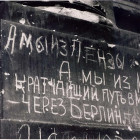 А МЫ ИЗ ПЕНЗЫ
А МЫ ИЗ
КРАТЧАЙШИЙ ПУТЬ В
ЧЕРЕЗ БЕРЛИН